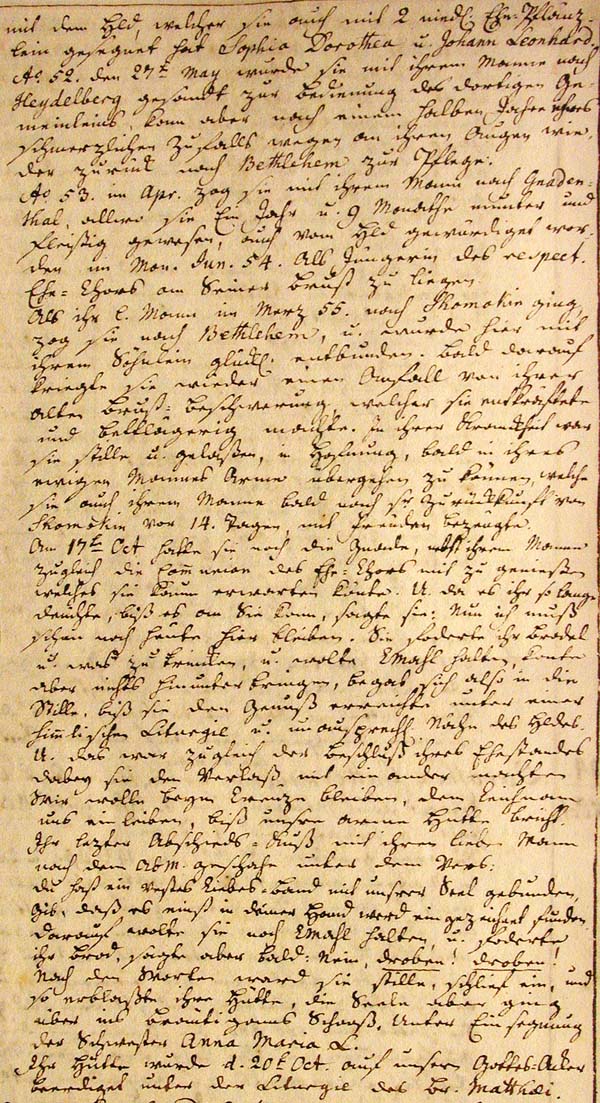 mit dem Hld, welcher sie auch mit 2 niedl. Ehe-Pflänz-
lein gesegnet hat Sophia Dorothea u. Johann Leonhard.
Ao. 52. den 27t May wurde sie mit ihrem Manne nach
Heydelberg gesandt zur Bedienung des dortigen Ge-
meinleins kam aber nach einem halben Jahre
schmerzlichen Zufalls wegen an ihren Augen wie
der zurück nach Bethlehem zur Pflege.
Ao 53. im Apr. zog sie mit ihrem Mann nach Gnaden-
thal, allwo sie Ein Jahr u. 9 Monathe munter und
fleißig gewesen, auch vom Hld gewürdiget wor-
den im Mon. Jun. 54. Als Jüngerin des respect.
Ehe-Chors an Seiner Brust zu liegen.
Als ihr l. Mann im Merz 55. nach Shomokin ging,
zog sie nach Bethlehem, u. wurde hier mit
ihrem Söhnlein glückl. entbunden. Bald darauf
kriegte sie wieder einen Anfall von ihrer
alten Brust-Beschwerung, welcher sie entkräftete
und bettlagerig machte. In ihrer Kranckheit war
sie stille u. gelaßen, in Hofnung, bald in ihres
ewigen Mannes Arme übergehen zu können, welches
sie auch ihrem Manne bald nach sr Zurückkunft von
Shomokin vor 14. Tagen, mit Freuden bezeugte.
Am 17t Oct hatte sie noch die Gnade, nebst ihrem Manne
zugleich die Com̄union des Ehe-Chors mit zu genießen
welches sie kaum erwarten konte. U. da es ihr so lange
deuchte, biß es an Sie kam, sagte sie: Nun ich muß
schon noch heute hier bleiben. Sie foderte ihr Brodel
u. was zu trinken, u. wolte Emahl halten, konte
aber nichts hinunter bringen, begab sich also in die
Stille, biß sie den Genuß erreichte unter einer
himlischen Liturgie u. unaussprechl. Nähe des Hldes.
U. das war zugleich der Beschluß ihres Ehestandes
dabey sie den Verlaß mit ein ander machten
Wir wolle beym Creuze bleiben, dem Leichnam
uns einleiben, biß unsre arme Hütte bricht.
Ihr lezter Abschieds-Kuß mit ihrem lieben Mann
nach dem Abm. geschahe unter dem Vers:
Du hast ein vestes Liebes-band mit unsrer Seel gebunden,
Gib, daß es einst in deiner Hand werd eingezeichnet funden.
Darauf wolte sie noch Emahl halten, u. foderte
ihr Brod, sagte aber bald: Nein, droben! droben!
Nach den Worten ward sie stille, schlief ein, und
so erblaßte ihre Hütte, die Seele aber ging
über ins Bräutigams Schooß. Unter Einsegnung
der Schwester Anna Maria L.
Ihr Hütte wurde d. 20t Oct. auf unsern Gottes-Acker
beerdiget unter der Liturgie des Br. Matthäi.